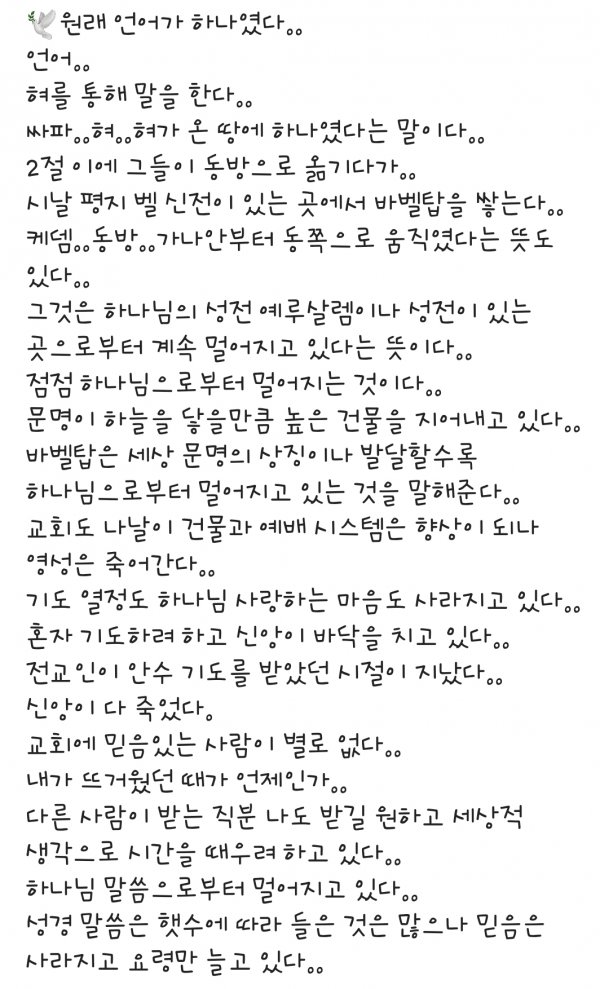 🕊️원래 언어가 하나였다..
언어..
혀를 통해 말을 한다..
싸파..혀..혀가 온 땅에 하나였다는 말이다..
2절 이에 그들이 동방으로 옮기다가..
시날 평지 벨 신전이 있는 곳에서 바벨탑을 쌓는다..
케뎀..동방..가나안부터 동쪽으로 움직였다는 뜻도
있다..
그것은 하나님의 성전 예루살렘이나 성전이 있는
곳으로부터 계속 멀어지고 있다는 뜻이다..
점점 하나님으로부터 멀어지는 것이다..
문명이 하늘을 닿을만큼 높은 건물을 지어내고 있다..
바벨탑은 세상 문명의 상징이나 발달할수록
하나님으로부터 멀어지고 있는 것을 말해준다..
교회도 나날이 건물과 예배 시스템은 향상이 되나
영성은 죽어간다..
기도 열정도 하나님 사랑하는 마음도 사라지고 있다..
혼자 기도하려 하고 신앙이 바닥을 치고 있다..
전교인이 안수 기도를 받았던 시절이 지났다..
신앙이 다 죽었다.
교회에 믿음있는 사람이 별로 없다..
내가 뜨거웠던 때가 언제인가..
다른 사람이 받는 직분 나도 받길 원하고 세상적
생각으로 시간을 때우려 하고 있다..
하나님 말씀으로부터 멀어지고 있다..
성경 말씀은 햇수에 따라 들은 것은 많으나 믿음은
사라지고 요령만 늘고 있다..